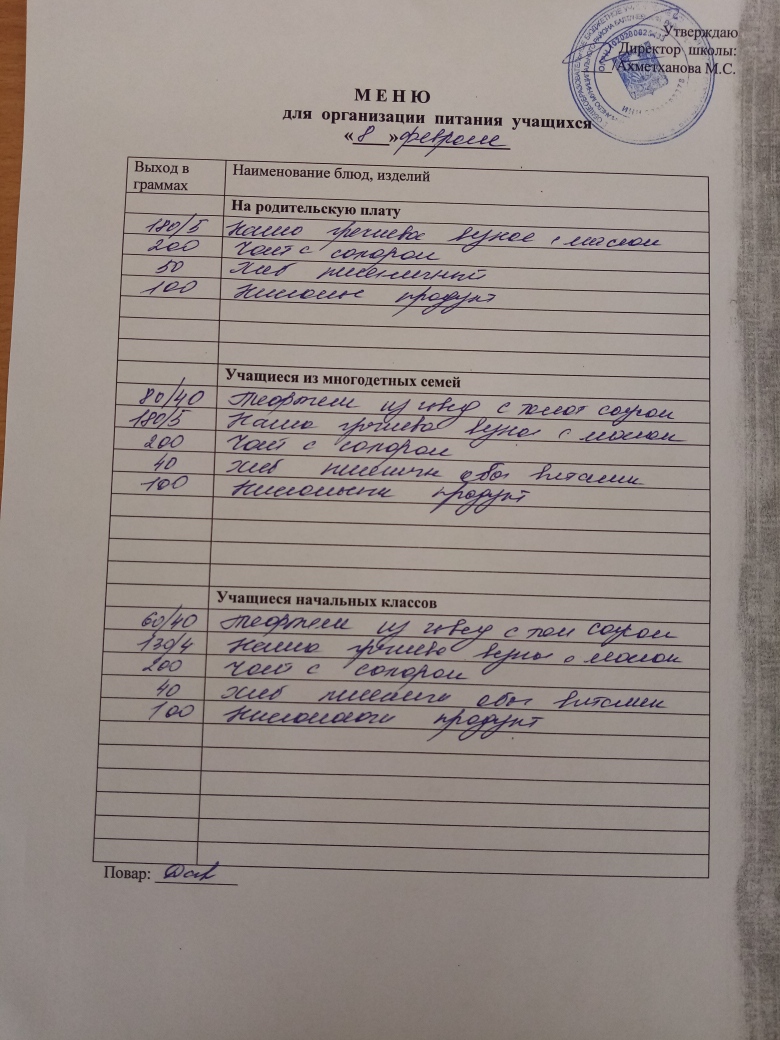 Утверждаю
Директор школы:
Ахметханова М.С.
М Е Н Ю
для организации питания учащихся
«8» февраля
Выход в граммах Наименование блюд, изделий
На родительскую плату
180/5 Каша гречнева вязкая с маслом
200 Чай с сахаром
50 Хлеб пшеничный
100 Кисломол продукт
Учащиеся из многодетных семей
80/40 Тефтели из говяд с томат соусом
180/5 Каша гречнева вязка с маслом
200 Чай с сахаром
40 Хлеб пшеничн обог витамин
100 Кисломольны продукт
Учащиеся начальных классов
60/40 Тефтели из говяд с том соусом
130/4 Каша гречнева вязка с маслом
200 Чай с сахаром
40 Хлеб обог витамин
100 продукт
Повар: